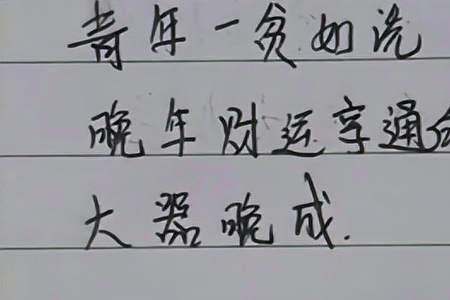 青年一贫如洗
晚年财运亨通
大器晚成.